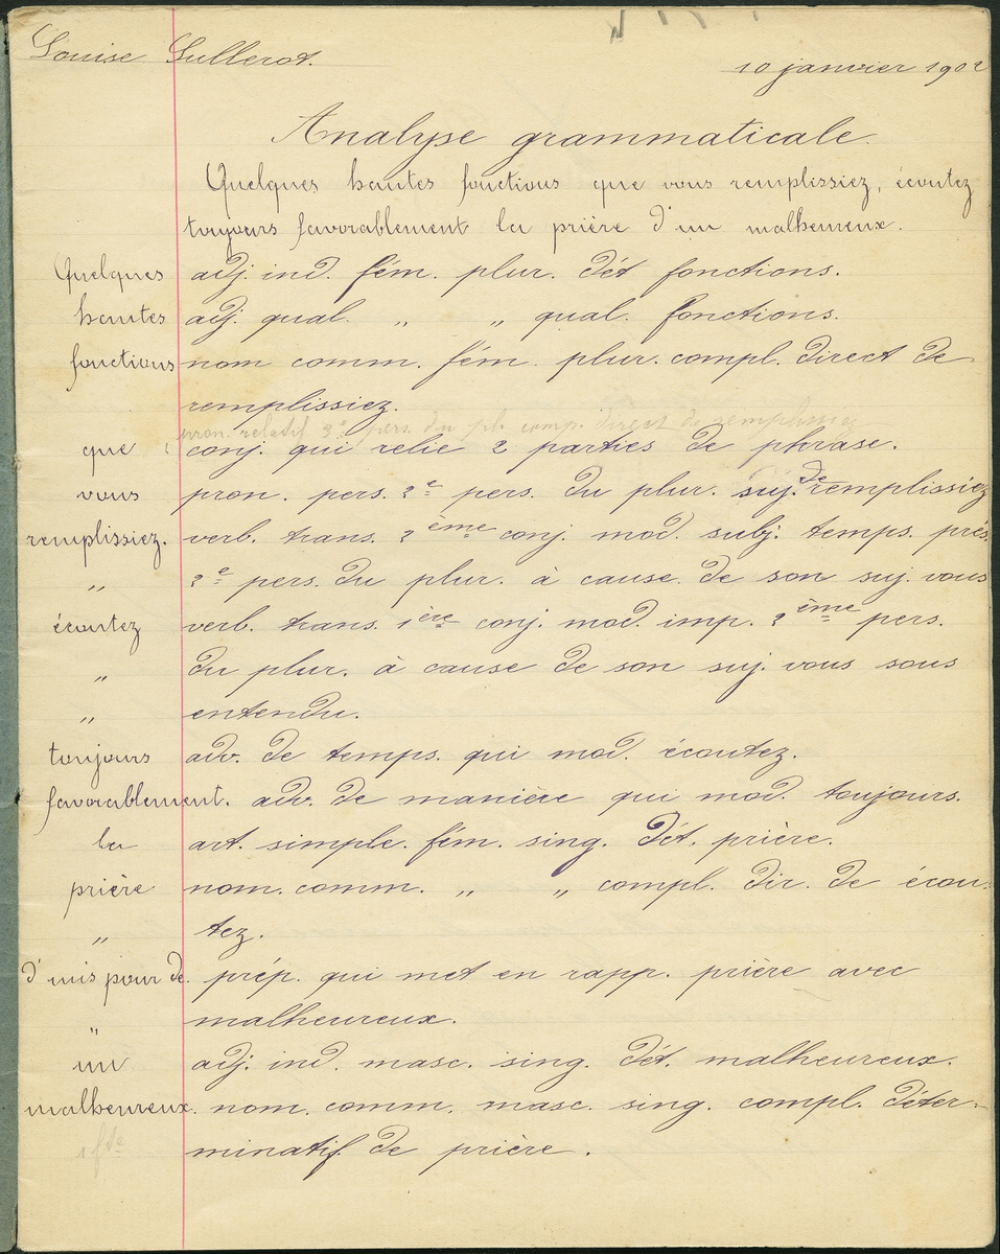 Louise Sullerot.
10 janvier 1902
Analyse grammaticale.
Quelques hautes fonctions que vous remplissiez, écoutez
toujours favorablement la prière d'un malheureux.
Quelques adj. ind. fém. plur. dét fonctions.
hautes adj. qual. " " qual. fonctions.
fonctions nom comm. fém. plur. compl. direct de
remplissiez.
pron. relatif 3e pers. du pl. comp. direct de remplissiez
que conj. qui relie 2 parties de phrase.
vous pron. pers. 2e pers. du plur. suj. de remplissiez
remplissiez. verb. trans. 2ème conj. mod. subj. temps. prés.
" 2e pers. du plur. à cause de son suj. vous
écoutez verb. trans. 1ère conj. mod. imp. 2ème pers.
" du plur. à cause de son suj. vous sous
" entendu.
toujours adv. de temps. qui mod. écoutez.
favorablement. adv. de manière qui mod. toujours.
la art. simple. fém. sing. dét. prière.
prière nom. comm. " " compl. dir. de écou-
" tez.
d' mis pour de. prép. qui met en rapp. prière avec
" malheureux.
un adj. ind. masc. sing. dét. malheureux.
malheureux. nom. comm. masc. sing. compl. déter-
1 fte minatif de prière.